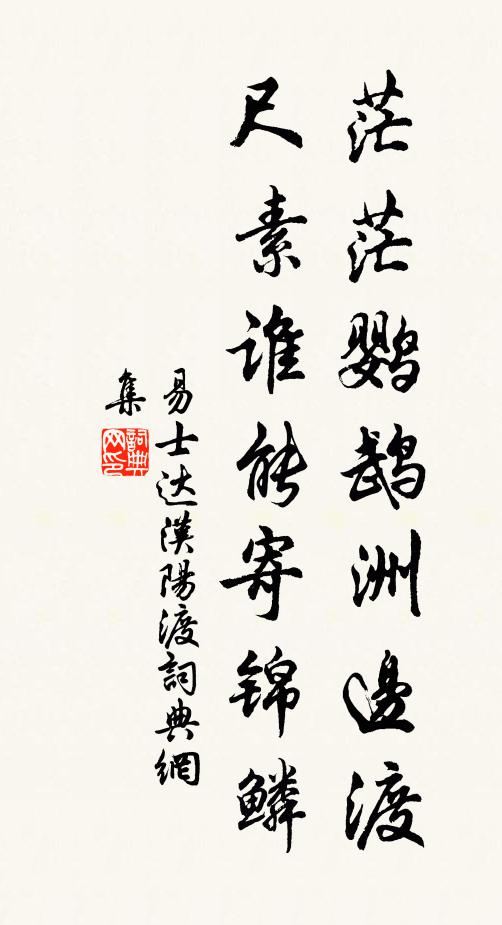 茫茫鹦鹉洲邊渡
尺素谁能寄锦鳞
易士达漢陽渡詞典網
集
詞典网印